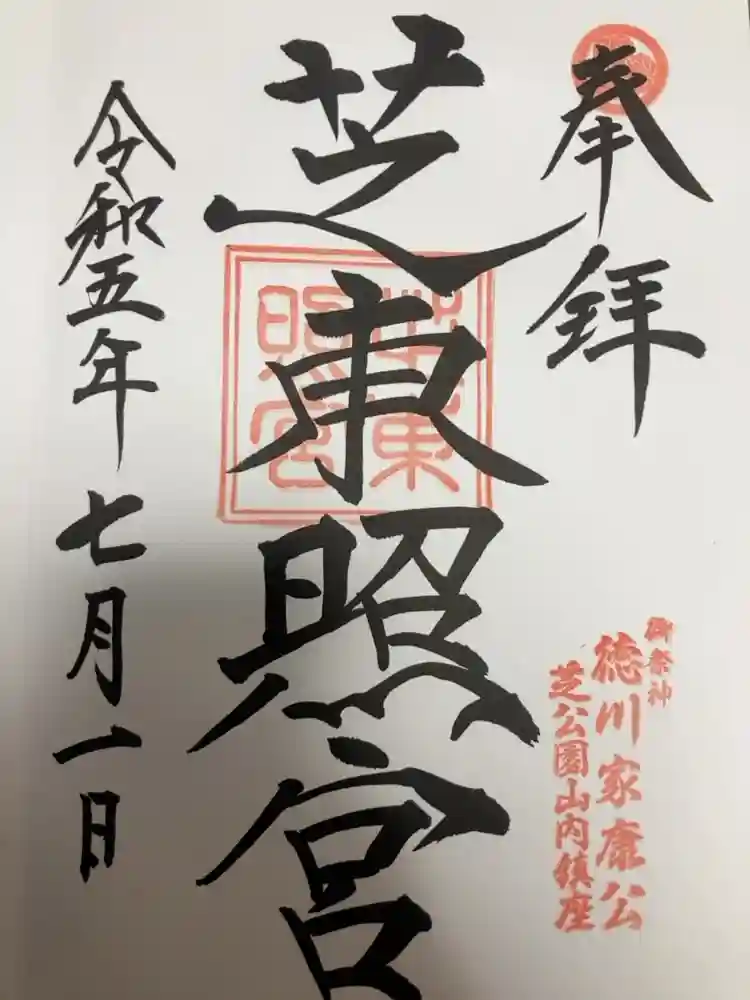 奉拝
御祭神
徳川家康公
芝公園山内鎮座
芝東照宮
芝東
照宮
令和五年七月一日